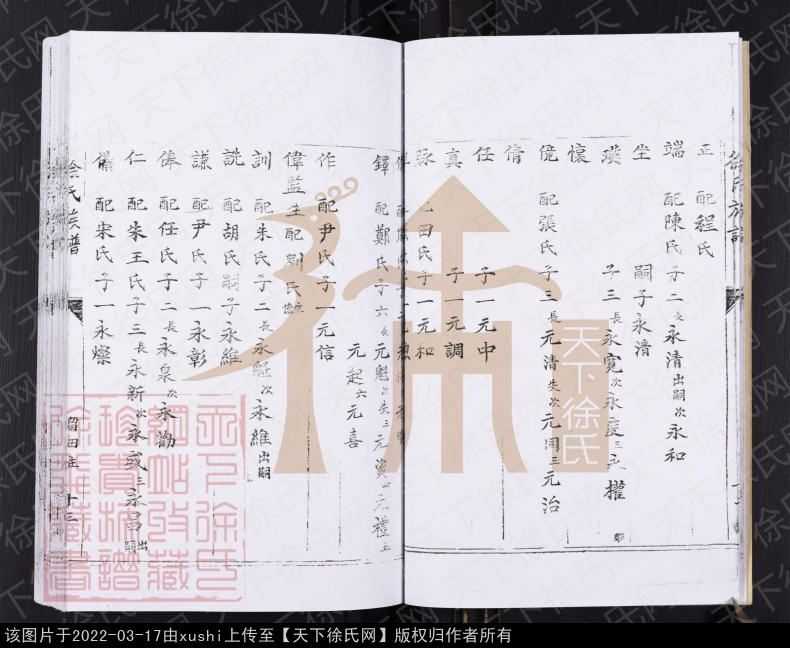 正 配程氏
端 配陳氏子二長永清出嗣次永和
坐 嗣子永清
子三長永寬次永慶三永權
懷
配張氏子三長元清失次元同三元治
倩
任 子一元中
真 子一元調
田氏子一元和
鐸 配鄭氏子六長元魁次失三元資四元禮五
元起六元喜
作 配尹氏子一元信
偉 監生配劉氏
訓 配朱氏子二長永魁次永維出嗣
詵 配胡氏嗣子永維
謙 配尹氏子一永彰
俸 配任氏子二長永泉次永勸
仁 配朱王氏子三長永新次永或三永
配宋氏子一永燦
徐氏族譜
徐氏族普
留田主 十三
天下徐氏
天下徐氏网
该图片于2022-03-17由xushi上传至【天下徐氏网】版权归作者所有